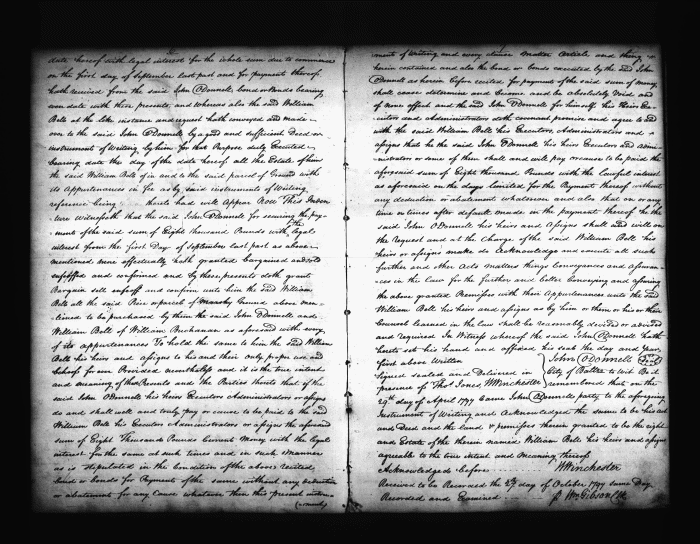 date hereof with legal interest for the whole sum due to commence
on the first day of September last past and for payment thereof
hath received from the said John O'Donnell bond or bonds bearing
even date with these presents, and whereas also the said William
Bell at the like instance and request hath conveyed and made
over to the said John O'Donnell by a good and sufficient Deed or
instrument of Writing by him for that Purpose duly Executed
bearing date the day of the date hereof all the Estate of him
the said William Bell of in and to the said parcel of Ground with
its Appurtenances in fee as by said instruments of Writing
reference being thereto had will Appear Now This Inden
ture Witnesseth that the said John O'Donnell for securing the pay-
ment of the said sum of Eight thousand Pounds with the legal
interest from the first Day of September last past as above
mentioned more effectually hath granted bargained and sold
enfeoffed and confirmed and by these presents doth grant
Bargain sell enfeoff and confirm unto him the said William
Bell all the said Piece or parcel of marshy Ground above men-
tioned to be purchased by them the said John O'Donnell and
William Bell of William Buchanan as aforesaid with every
of its appurtenances To hold the same to him the said William
Bell his heirs and assigns to his and their only proper use and
behoof for ever Provided nevertheless and it is the true intent
and meaning of these Presents and the Parties thereto that if the
said John O'Donnell his heirs Executors Administrators or assigns
do and shall well and truly pay or cause to be paid to the said
William Bell his Executors Administrators or assigns the aforesaid
sum of Eight Thousands Pounds Current Money with the legal
interest for the same at such times and in such Manner
as is stipulated in the Condition of the above recited
bond or bonds for Payment of the same without any deduction
or abatement for any Cause whatever then this present instru
ments of Writing and every clause matter article and thing
herein contained and also the bond or bonds executed by the said John
O'Donnell as herein before recited for payment of the said sum of money
shall cease determine and become and be absolutely Void and
of none effect and the said John O'Donnell for himself, his Heirs Exe
cutors and Administrators doth covenant promise and agree to and
with the said William Bell his Executors, Administrators and
assigns that he the said John O'Donnell his heirs Executors and admi-
nistrators or some of them shall and will pay or cause to be paid the
aforesaid sum of Eight thousand Pounds with the Lawful interest
as aforesaid on the days limited for the Payment thereof without
any deduction or abatement whatsoever and also that on or any
time or times after default made in the payment thereof he the
said John O'Donnell his heirs and assigns shall and will on
the Request and at the Charge of the said William Bell his
heirs or assigns make do Acknowledge and execute all such
further and other Acts matters things Conveyances and assuran-
ces in the Law for the further and better Conveying and assuring
the above granted Premisses with their Appurtenances unto the said
William Bell his heirs and assigns as by him or them or his or their
Counsel learned in the Law shall be reasonably devised or advised
and required In Witness whereof the said John O'Donnell hath
hereto set his hand and affixed his seal the day and year
first above Written John O'Donnell Seal
Signed sealed and Delivered in City of Balto to wit Be it
presence of Thos Jones W Winchester remembered that on the
29th day of April 1797 Came John O'Donnell party to the aforegoing
Instrument of Writing and Acknowledged the same to be his act
and Deed and the land & premises therein granted to be the right
and Estate of the therein named William Bell his heirs and assigns
agreeable to the true intent and Meaning thereof
Acknowledged before W Winchester
Received to be Recorded the day of October 1797 same Day
Recorded and Examined Wm Gibson Clk